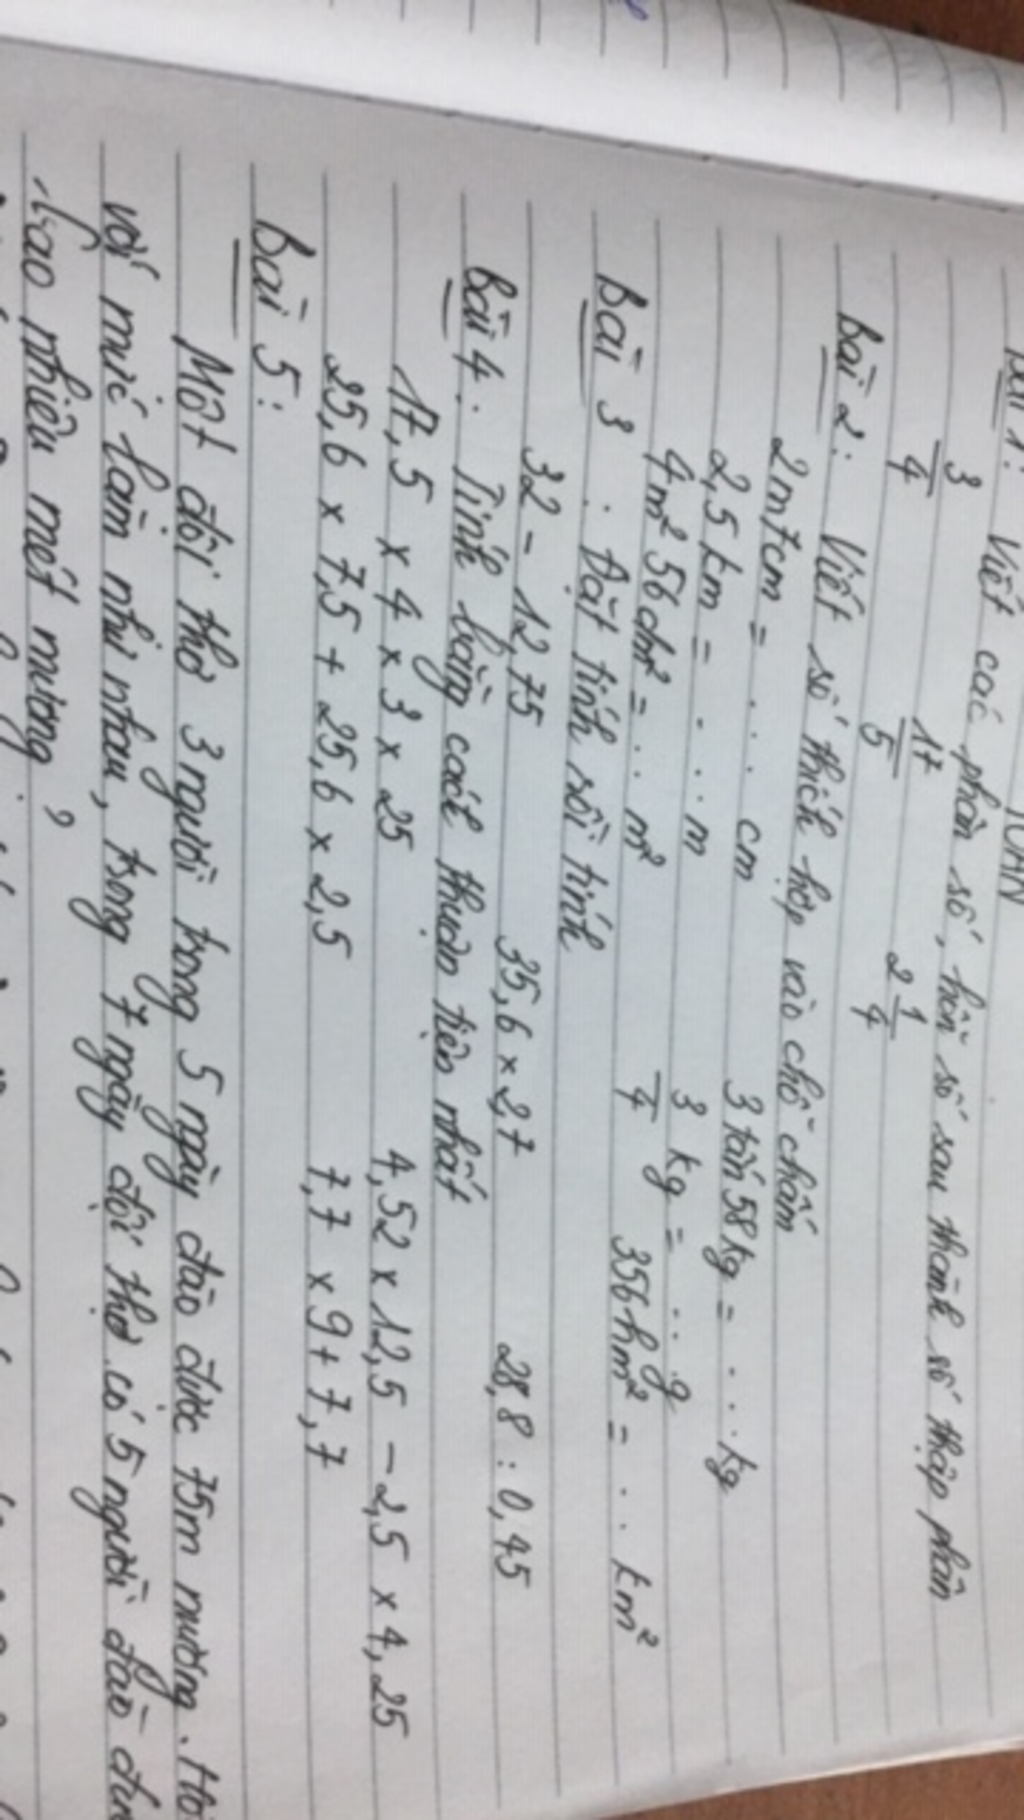 TOÁN
Bài 1: Viết các phân số, hỗn số sau thành số thập phân
3/4 17/5 2 1/4
Bài 2: Viết số thích hợp vào chỗ chấm
2m7cm = ... cm 3 tấn 58kg = ... kg
2,5km = ... m 3/4 kg = ... g
4m² 56dm² = ... m² 356hm² = ... km²
Bài 3: Đặt tính rồi tính
32 - 12,75 35,6 x 2,7 28,8 : 0,45
Bài 4: Tính bằng cách thuận tiện nhất
17,5 x 4 x 3 x 25 4,52 x 12,5 - 2,5 x 4,25
25,6 x 7,5 + 25,6 x 2,5 7,7 x 9 + 7,7
Bài 5:
Một đội thợ 3 người trong 5 ngày đào được 75m mương. Hỏi
với mức làm như nhau, trong 7 ngày đội thợ có 5 người đào
bao nhiêu mét mương ?